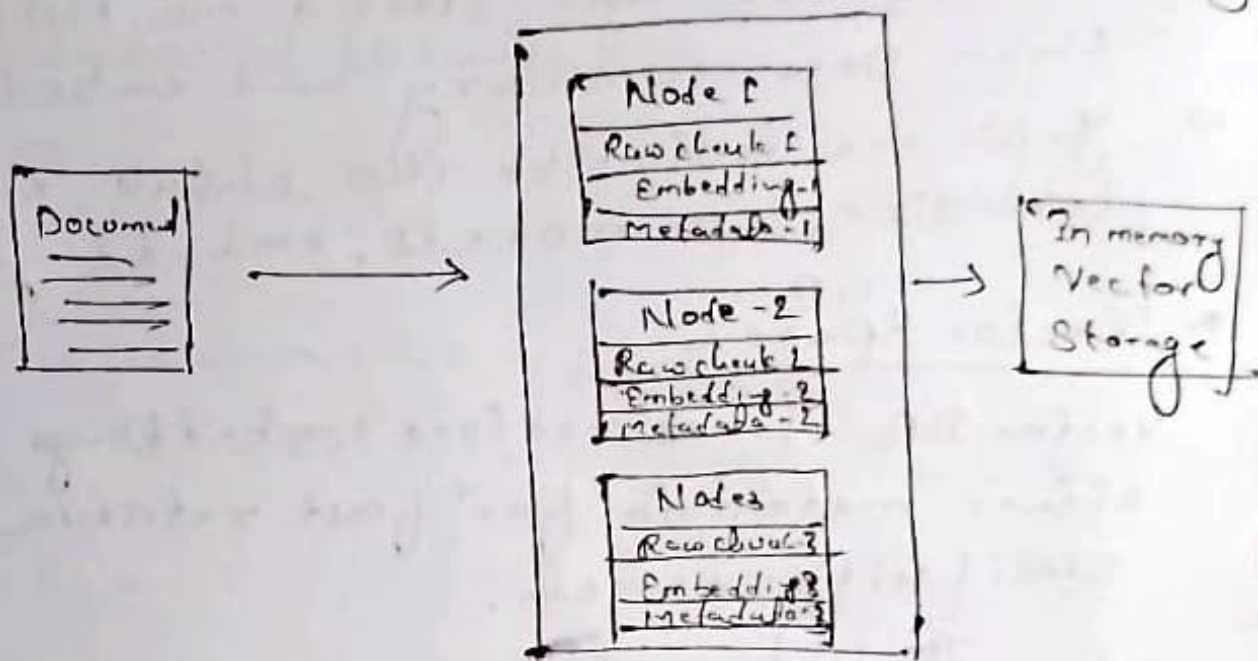 Document
Node 1
Raw chunk 1
Embedding-1
Metadata-1
Node-2
Raw chunk 2
Embedding-2
Metadata-2
Node3
Raw chunk-3
Embedding3
Metadata-3
In memory
Vector
Storage